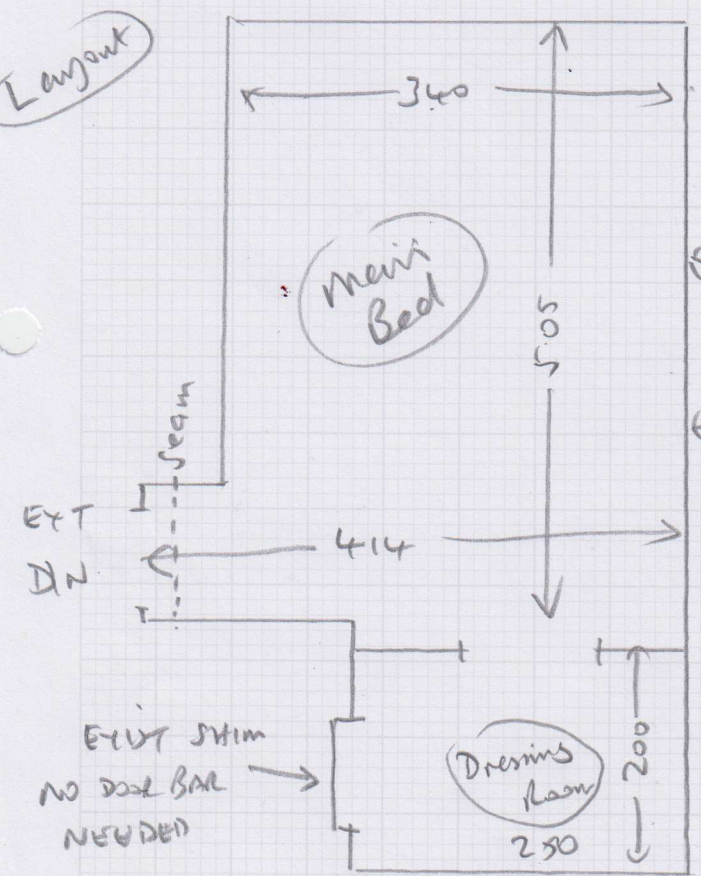 Layout
340
Main
Bed
505
Seam
EXT
DIN
414
EXIST SHIM
NO DOOR BAR
NEEDED
Dressing
Room
200
250